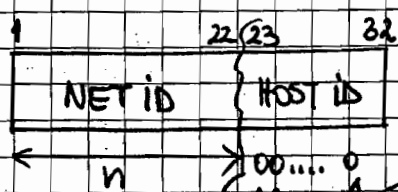 1 22 23 32
NET ID HOST ID
n 00.... 0